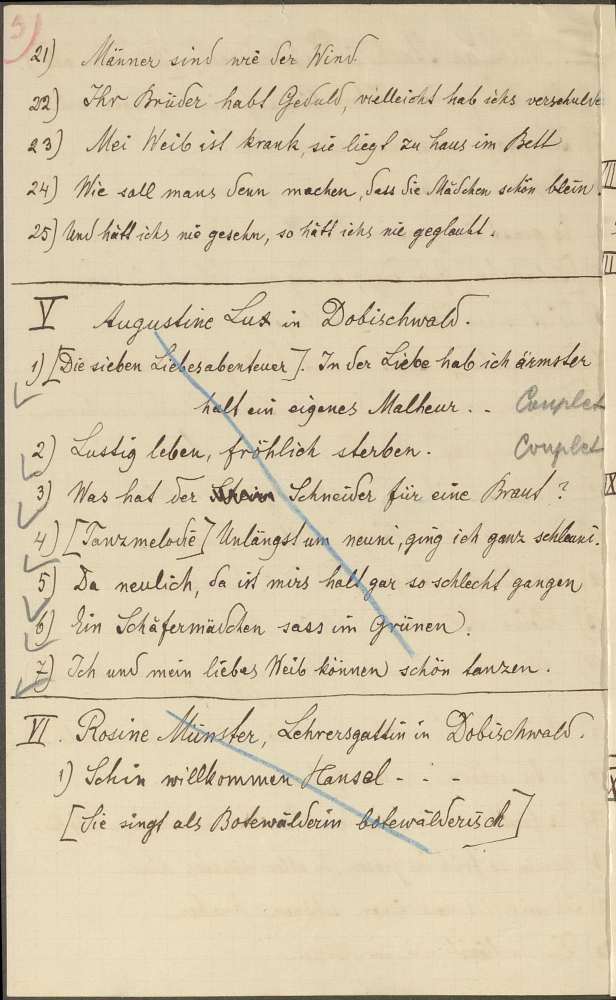 3)
21) Männer sind wie der Wind.
22) Ihr Brüder habt Geduld, vielleicht hab ichs verschulde
23) Mei Weib ist krank, sie liegt zu haus im Bett
24) Wie soll mans denn machen, dass die Mädchen schön blein.
25) Und hätt ichs nie gesehn, so hätt ichs nie geglaubt.
V Augustine Lux in Dobischwald.
1) [Die sieben Liebesabenteuer]. In der Liebe hab ich ärmster
halt ein eigenes Malheur. . Couplet
2) Lustig leben, fröhlich sterben. Couplet
3) Was hat der Schneider für eine Braut?
4) [Tanzmelodie] Unlängst um neuni, ging ich ganz schleuni.
5) Da neulich, da ist mirs halt gar so schlecht gangen
6) Ein Schäfermädchen sass im Grünen.
7) Ich und mein liebes Weib können schön tanzen.
VI. Rosine Münster, Lehrersgattin in Dobischwald.
1) Schin willkommen Hansel - . -
[Sie singt als Botewälderin botewälderisch]